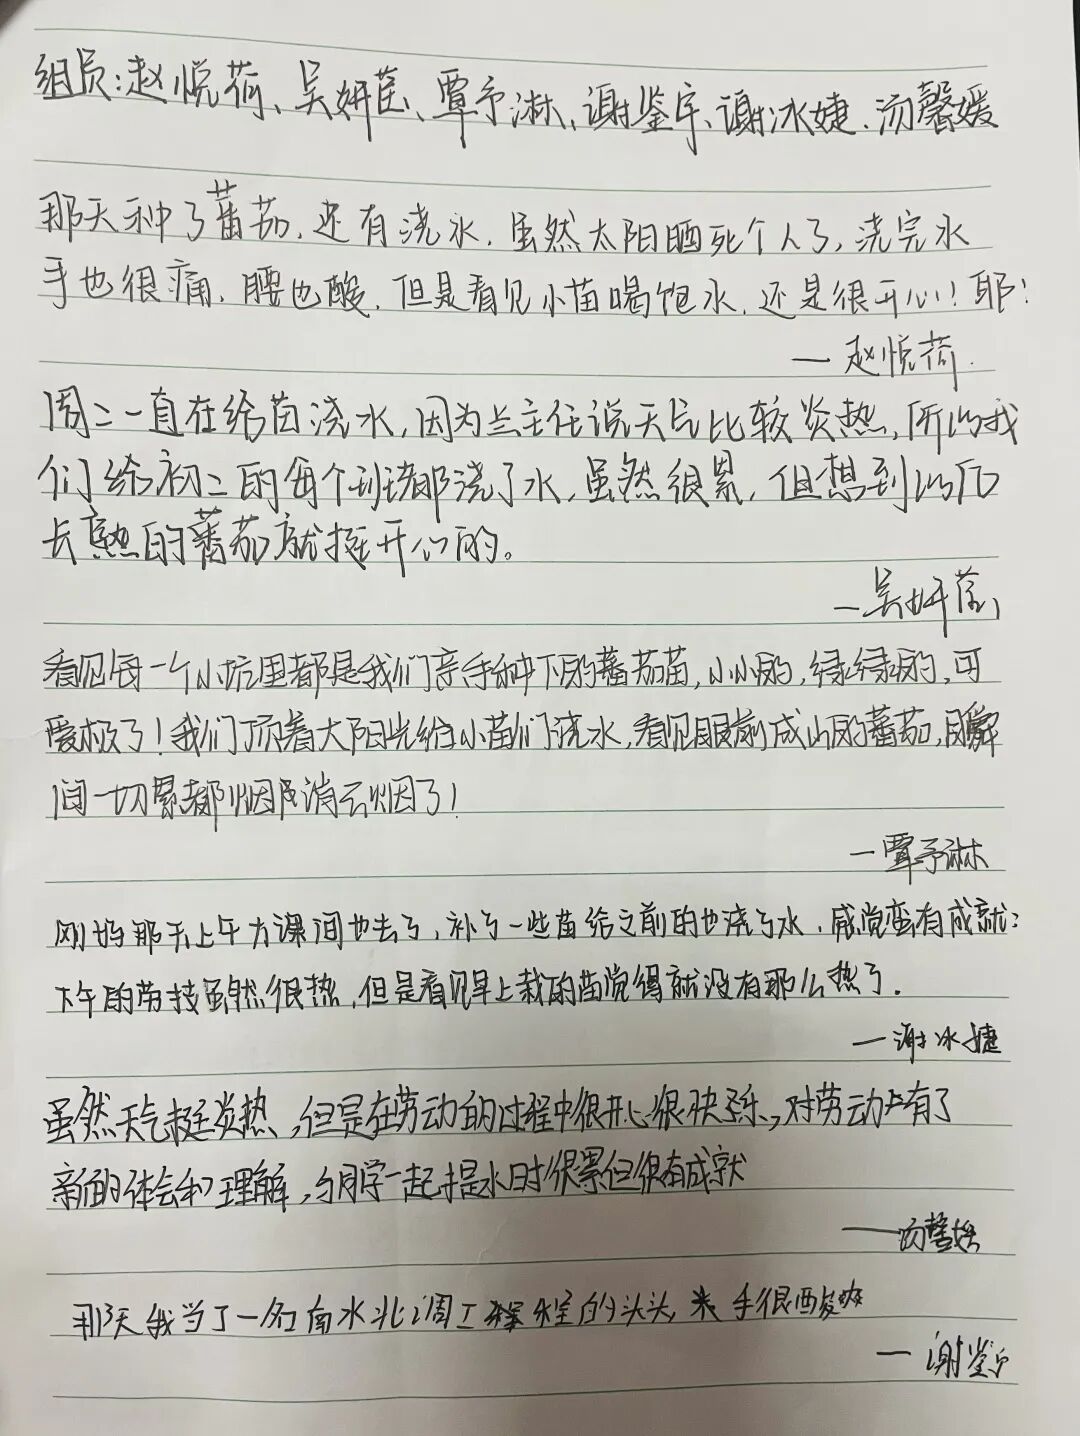 组员:赵悦荷、吴妍莹、覃予淋、谢鉴宇、谢冰婕、汤馨媛
那天种了蕃茄,还有浇水,虽然太阳晒死个人了,浇完水
手也很痛,腰也酸,但是看见小苗喝饱水,还是很开心!耶!
—赵悦荷
周二一直在给苗浇水,因为兰主任说天气比较炎热,所以我
们给初二的每个班都浇了水,虽然很累,但想到以后
长熟的蕃茄就挺开心的。
—吴妍莹
看见每一个小坑里都是我们亲手种下的蕃茄苗,小小的,绿绿的,可
爱极了!我们顶着大阳光给小苗们浇水,看见眼前成山的蕃茄,瞬
间一切累都烟消云烟了!
—覃予淋
刚好那天上午大课间也去了,补了一些苗给之前的也浇了水,感觉蛮有成就:
下午的劳技虽然很热,但是看见早上栽的苗觉得就没有那么热了.
—谢冰婕
虽然天气挺炎热,但是在劳动的过程中很开心很快乐,对劳动有了
新的体会和理解,与同学一起提水时很累但很有成就
—汤馨媛
那天我当了一名南水北调工程的头头,手很酸爽
—谢鉴宇